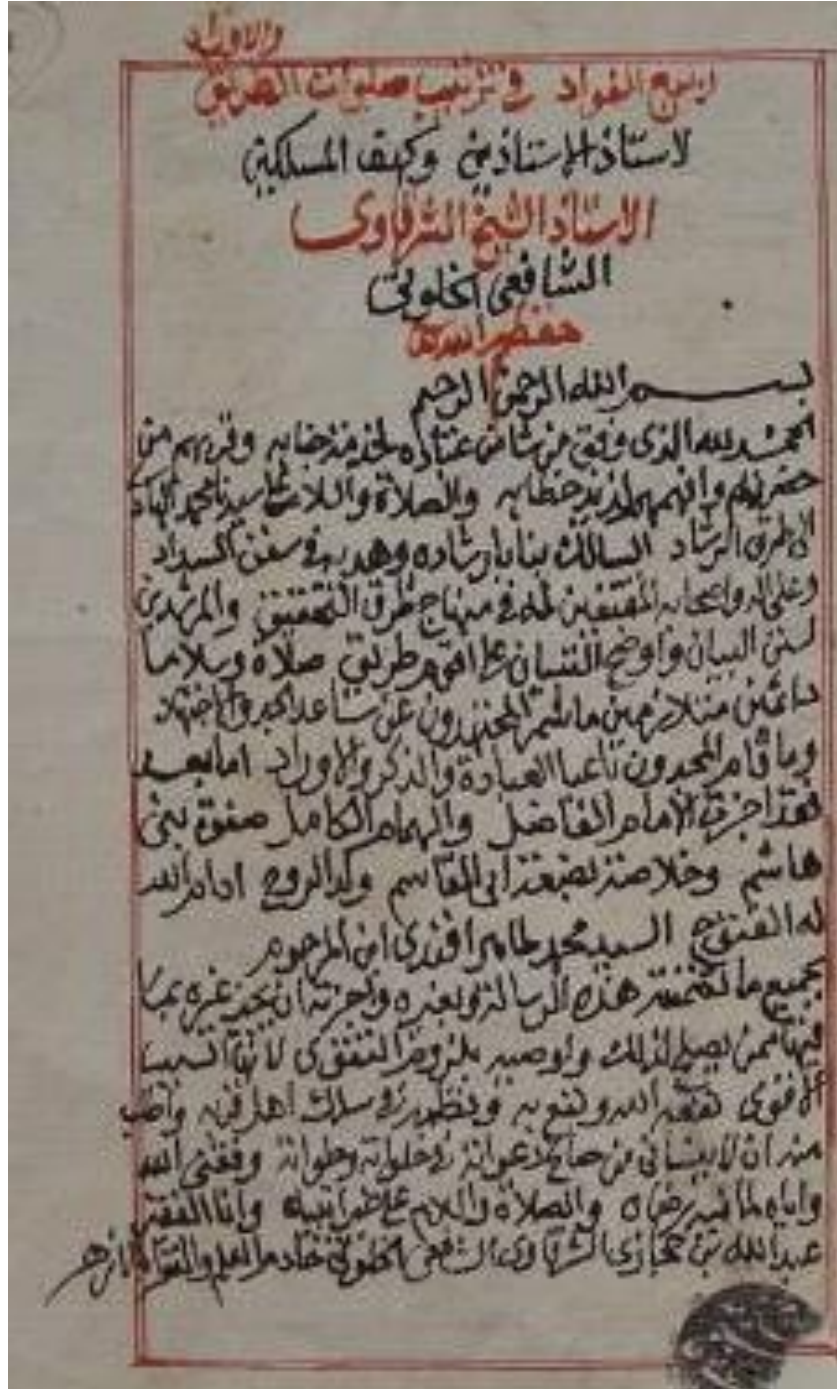 والاوراد
ربيع الفواد في ترتيب صلوات الطريق
لاستاذ الاستاذين وكهف المسلكين
الاستاذ الشيخ الشرقاوي
الشافعي الخلوتي
حفظه الله
بسم الله الرحمن الرحيم
الحمد لله الذي وفق من شا من عباده لخدمة جنابه وقربهم من
حضرته والهمهم لذيذ خطابه والصلاة والسلام على سيدنا محمد الهادي
الى طرق الرشاد السالك بنا بارشاده وهديه في سنن السداد
وعلى اله واصحابه المقتفين له في منهاج طرق التحقيق والمرشدين
لسنن البيان واوضح التبيان على اقوم طريق صلاة وسلاما
دائمين متلازمين ما شمر المجتهدون عن ساعد الجد والاجتهاد
وما قام المجدون باعبا العبادة والذكر والاوراد اما بعد
فقد اجزت الامام الفاضل والهمام الكامل صفوة بني
هاشم وخلاصة بضعة ابي القاسم وكد الروح ادام الله
له الفتوح السيد محمد طاهر افندي ابن المرحوم
بجميع ما تضمنته هذه الرسالة وبغيره واجزته ان يجيز غيره بما
فيها ممن يصلح لذلك واوصيه بلزوم التقوى لانها السبب
الاقوى نفعه الله ونفع به ونظمه في سلك اهل قربه واطلب
منه ان لا ينساني من صالح دعواته في خلواته وجلواته وفقني الله
واياه لما فيه رضاه والصلاة والسلام على وانا الفقير
عبد الله بن حجازي الشرقاوي الشافعي الخلوتي خادم العلم والفقرا بالازهر